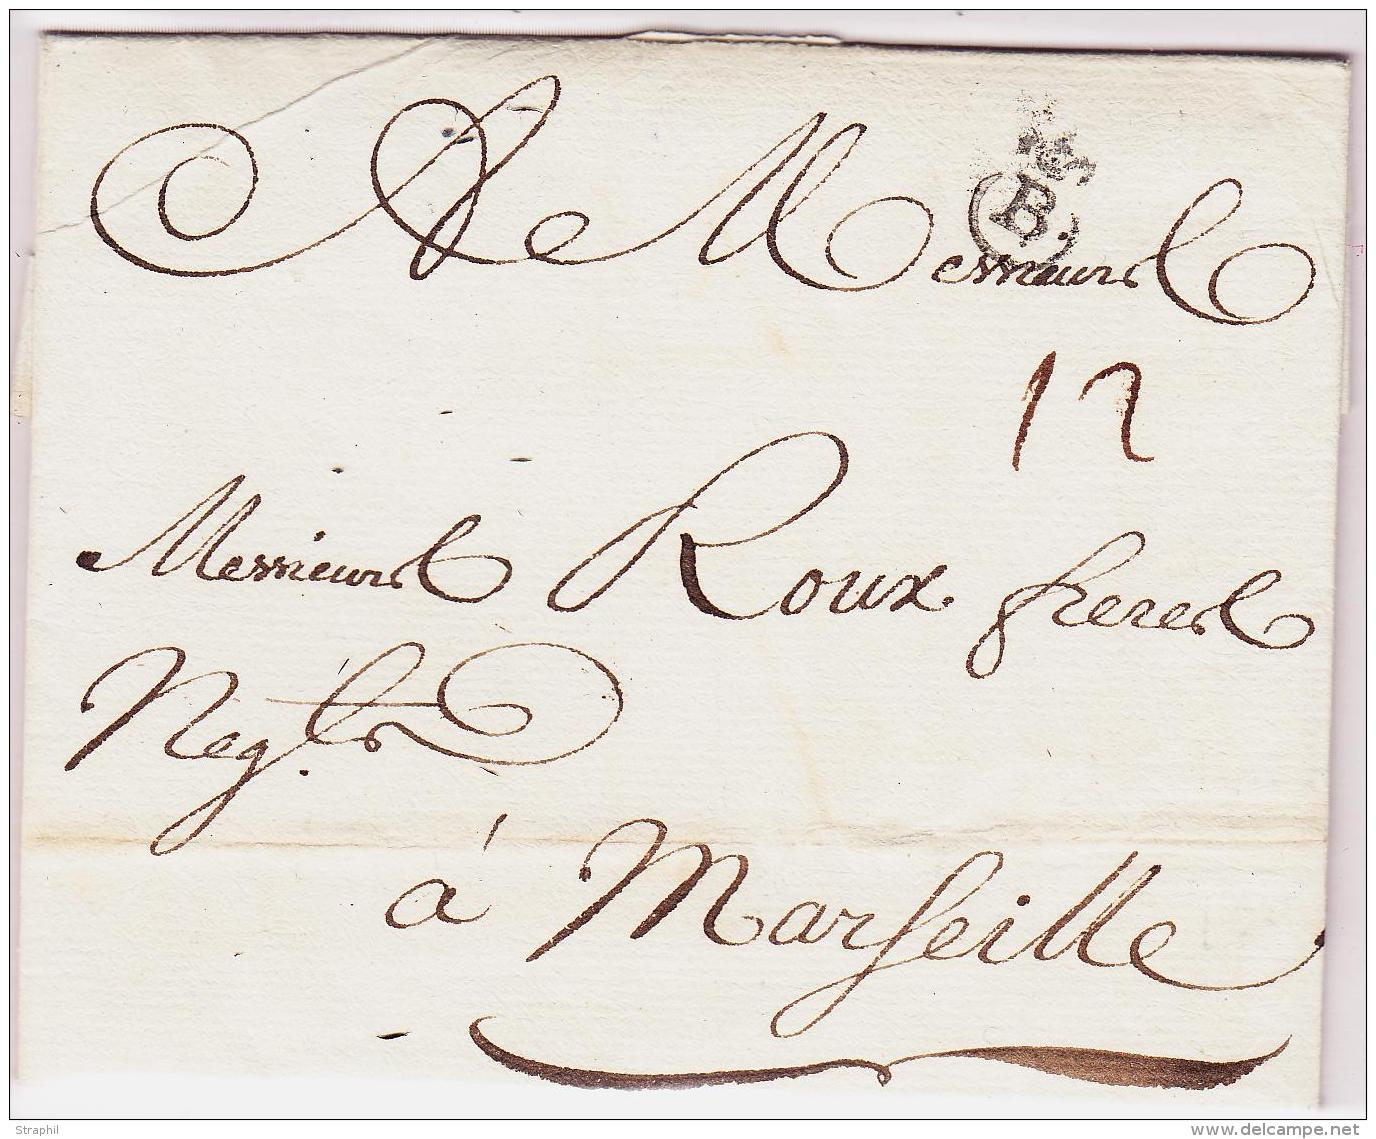 A Messieurs
B.
12
Messieurs Roux freres
Neg.ts
à Marseille
Straphil
www.delcampe.net